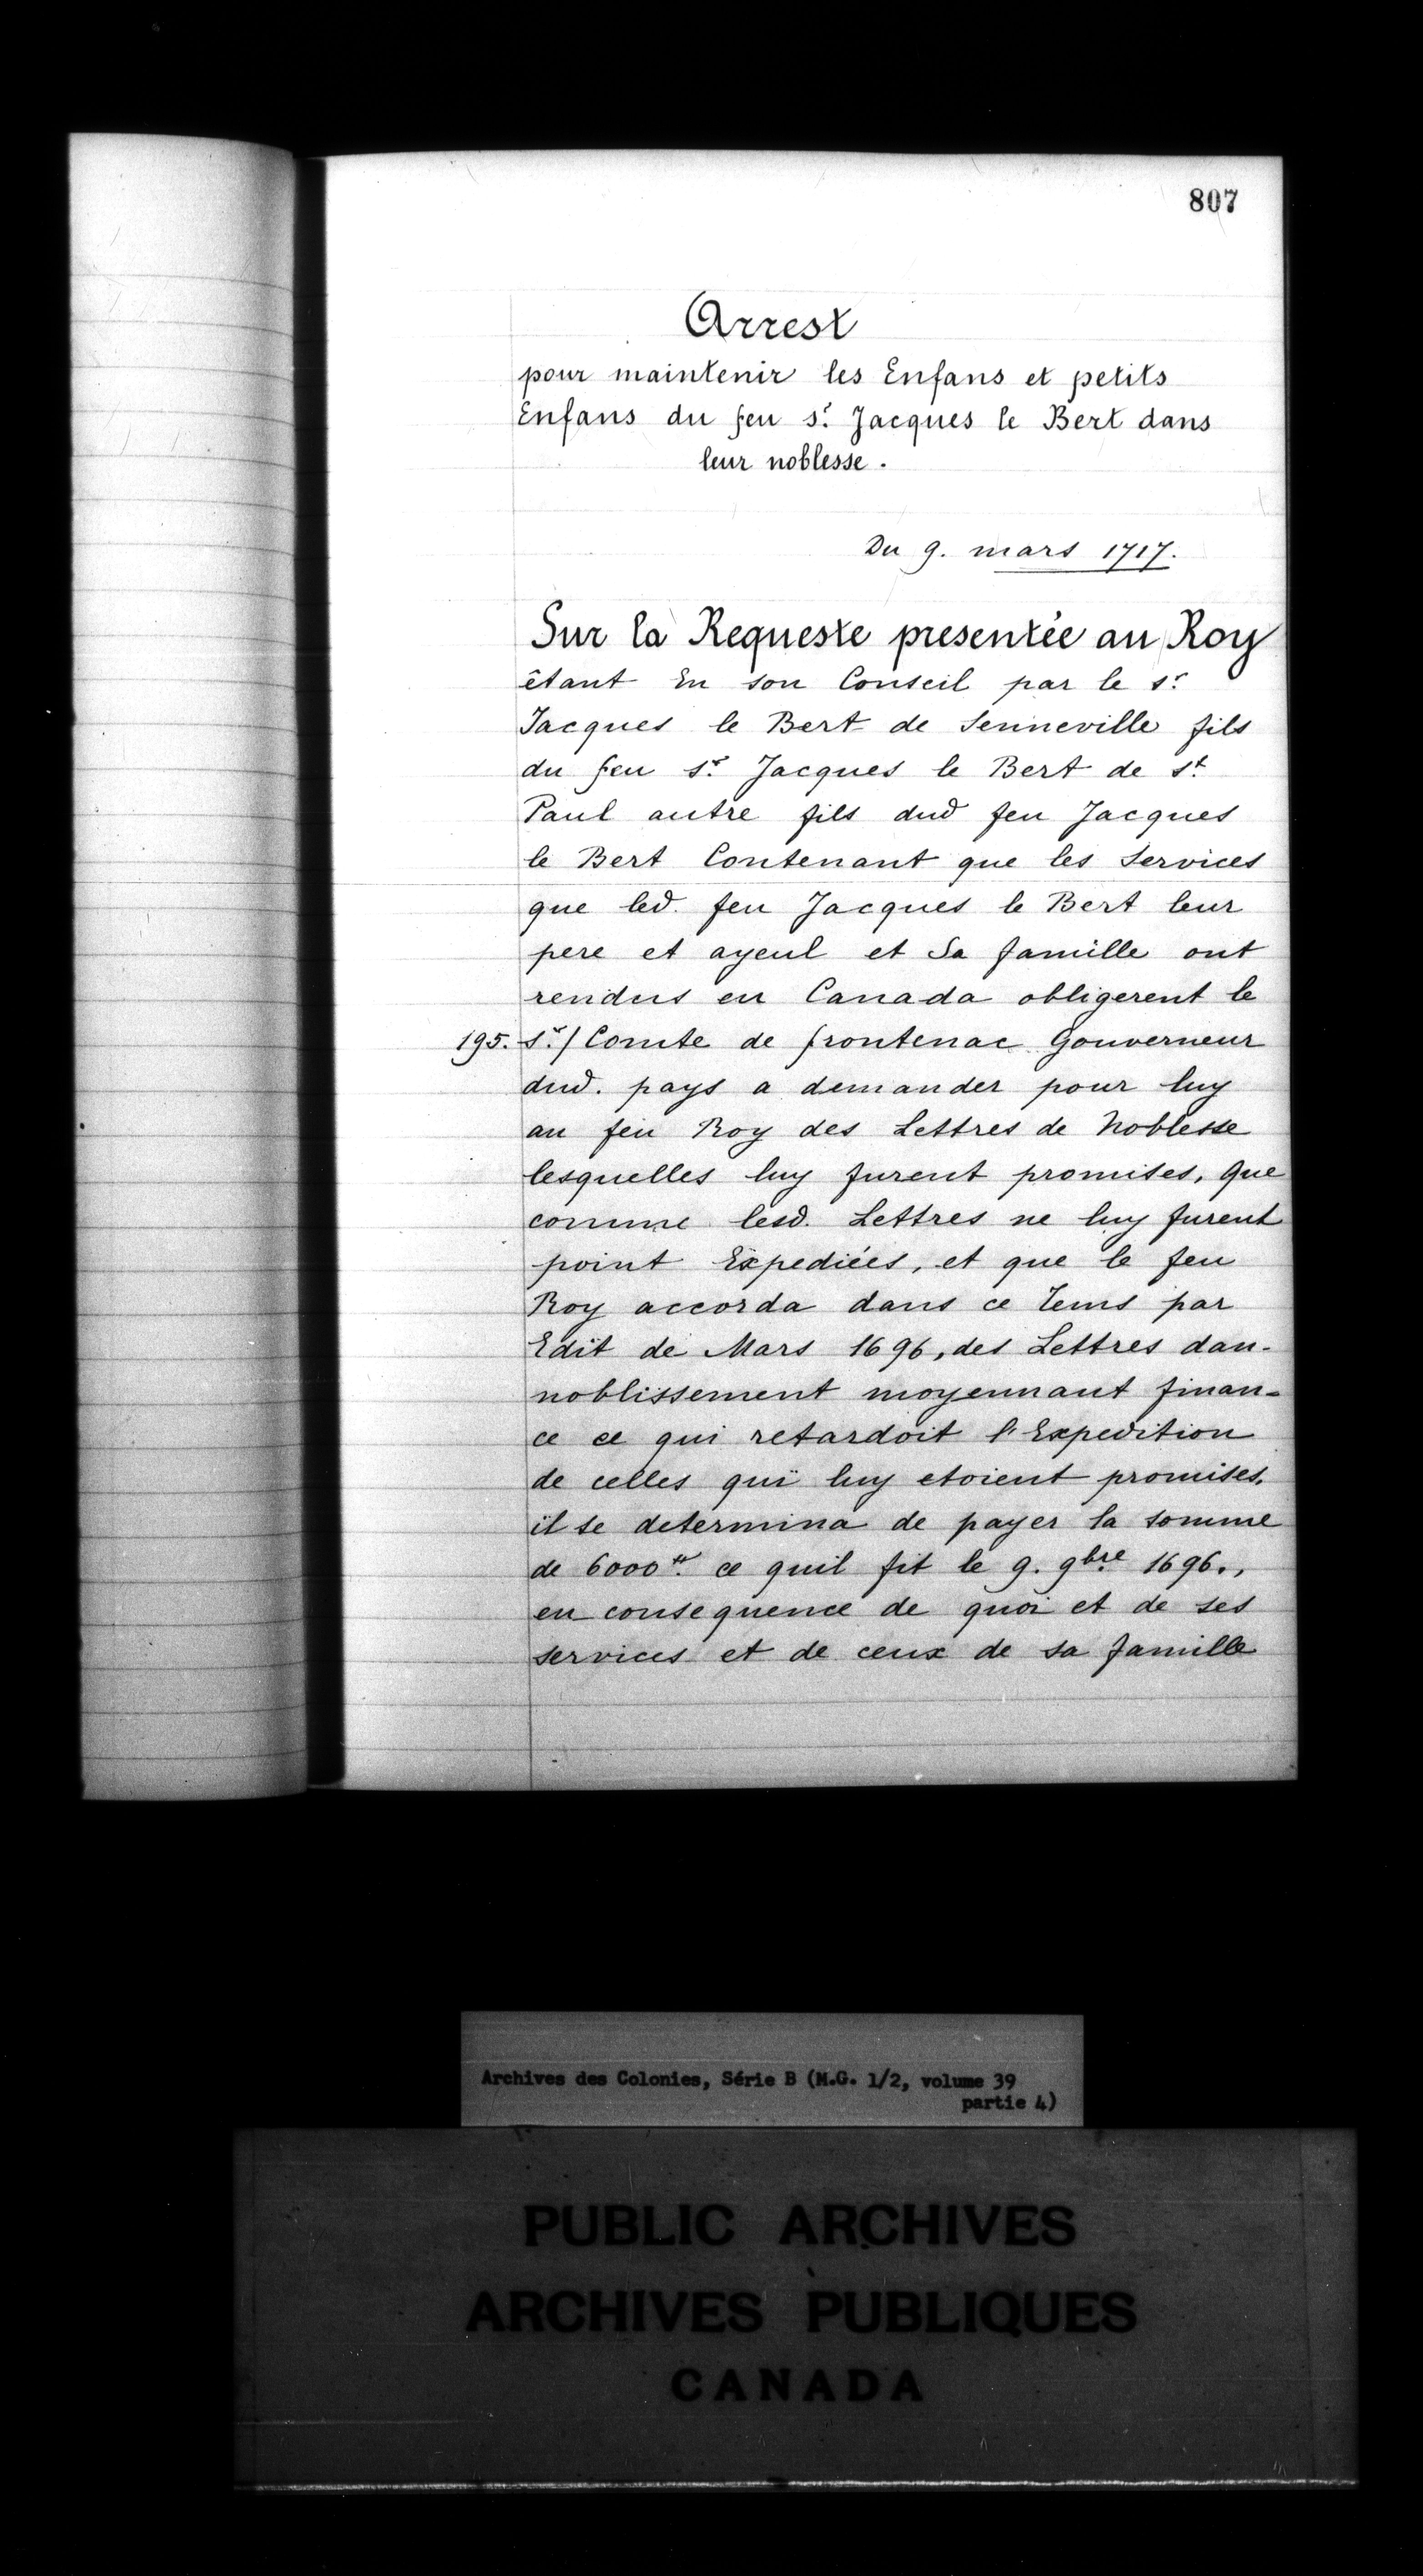 807
Arrest
pour maintenir les Enfans et petits
Enfans du feu sr. Jacques le Bert dans
leur noblesse.
Du 9. mars 1717.
Sur la Requeste presentée au Roy
êtant En son Conseil par le sr.
Jacques le Bert de Senneville fils
du feu sr. Jacques le Bert de st.
Paul autre fils dud feu Jacques
le Bert Contenant que les services
que led. feu Jacques le Bert leur
pere et ayeul et Sa famille ont
rendus en Canada obligerent le
195. sr./ Comte de frontenac Gouverneur
dud. pays a demander pour luy
au feu Roy des Lettres de Noblesse
lesquelles luy furent promises, que
comme lesd. Lettres ne luy furent
point Expediées, et que le feu
Roy accorda dans ce tems par
Edit de Mars 1696, des Lettres dan-
noblissement moyennant finan-
ce ce qui retardoit l'Expedition
de celles quï luy etoient promises,
il se determina de payer la somme
de 6000tt. ce quil fit le 9. 9bre. 1696.,
en consequence de quoi et de ses
services et de ceux de sa famille
Archives des Colonies, Série B (M.G. 1/2, volume 39
partie 4)
PUBLIC ARCHIVES
ARCHIVES PUBLIQUES
CANADA